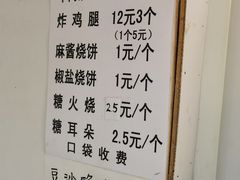 炸鸡腿 12元3个
(1个5元)
麻酱烧饼 1元/个
椒盐烧饼 1元/个
糖火烧 2.5元/个
糖耳朵 2.5元/个
口袋收费